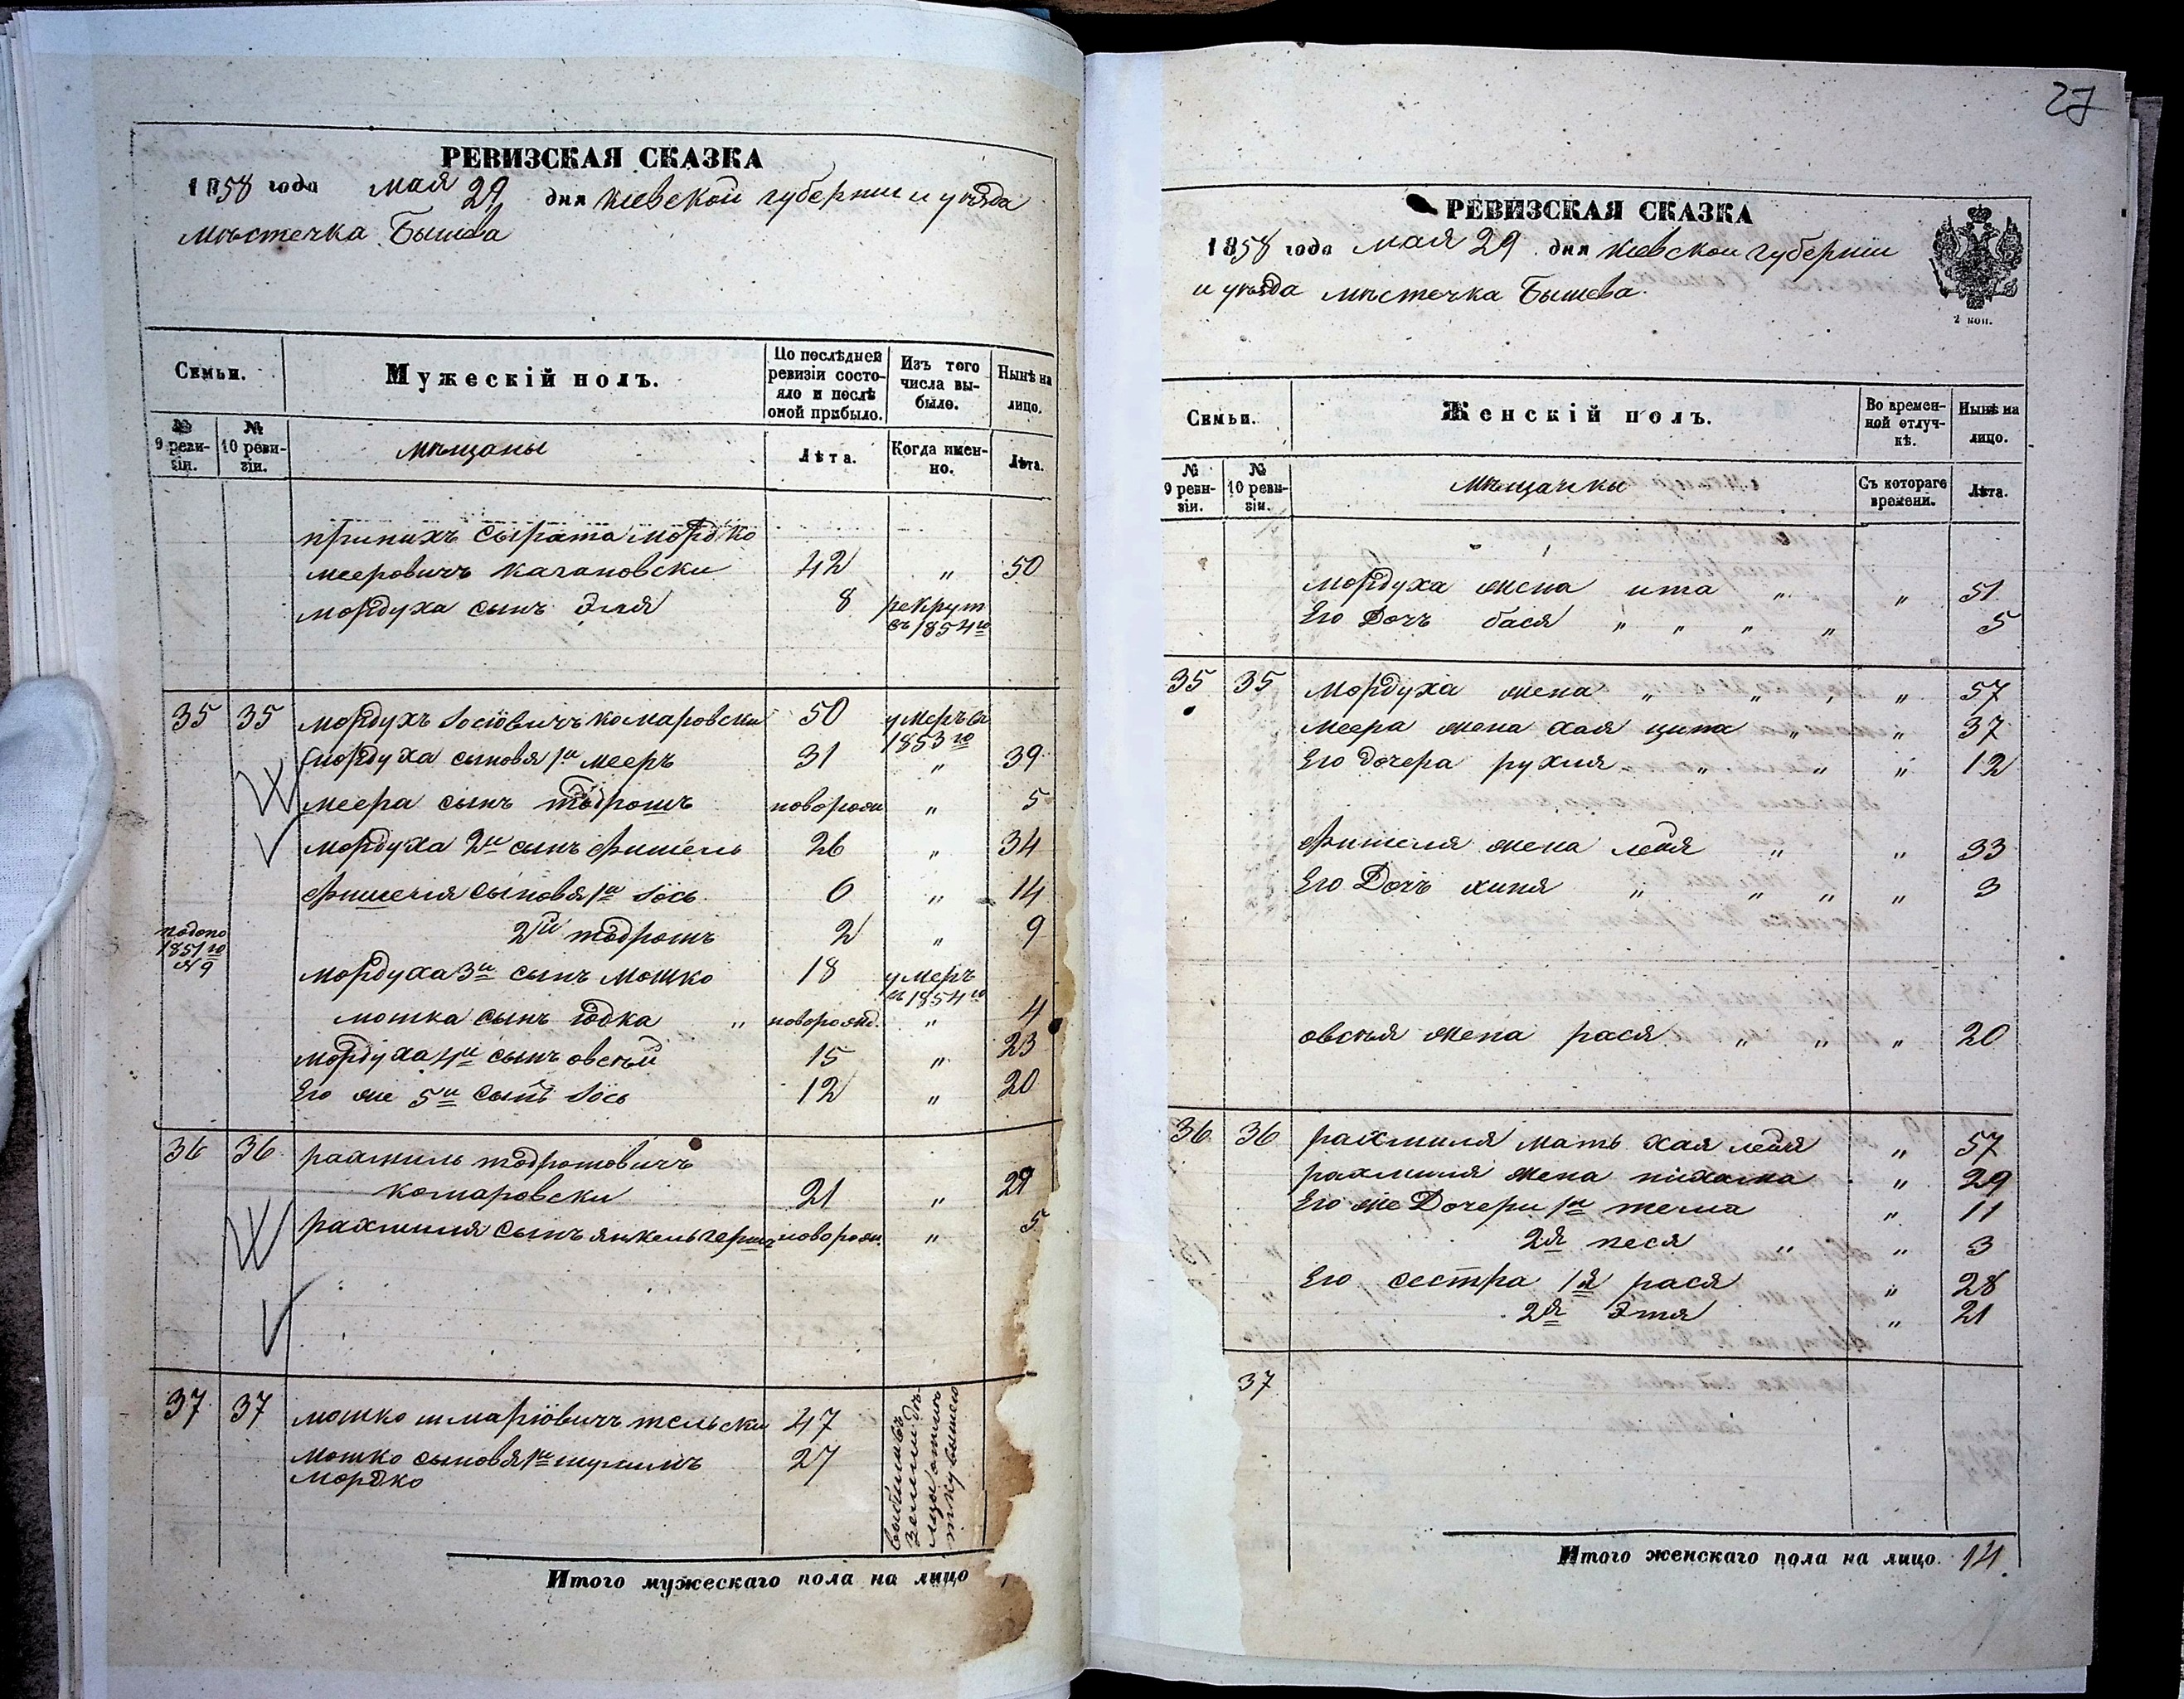 РЕВИЗСКАЯ СКАЗКА
1858 года мая 29 дня Киевской губернии и уѣзда
мѣстечка Бышева
Семьи.
Мужескій полъ.
По послѣдней ревизіи состояло и послѣ оной прибыло.
Изъ того числа выбыло.
Нынѣ на лицо.
№ 9 ревизіи.
№ 10 ревизіи.
мѣщаны
Лѣта.
Когда именно.
Лѣта.
сырата мордко
мееровичъ качановски 42 " 50
мордуха сынъ Эля 8 рекрут въ 1854 го
35 35 мордухъ Іосіовичъ комаровски 50 умеръ въ 1853 го
мордуха сыновя 1й мееръ 31 " 39
меера сынъ тодрошъ новорожд " 5
мордуха 2й сынъ фишель 26 " 34
фишеля сыновя 1й Іось 6 " 14
2й тодрошъ 2 " 9
1851 го № 9
мордуха 3й сынъ мошко 18 умеръ въ 1854 го
мошка сынъ іодка " новорожд. " 4
мордуха 4й сынъ овсѣй 15 " 23
Его же 5й сынъ Іось 12 " 20
36 36 рахмиль тодрошовичъ
комаровски 21 " 29
рахмиля сынъ янкель герш новорож. " 5
37 37 мошко шмаріовичъ тельски 47
мошко сыновя 1й шулимъ 27
мордко
Итого мужескаго пола на лицо
27
РЕВИЗСКАЯ СКАЗКА
1858 года мая 29 дня Киевской губернии
и уѣзда мѣстечка Бышева.
2 коп.
Семьи.
Женскій полъ.
Во временной отлучкѣ.
Нынѣ на лицо.
№ 9 ревизіи.
№ 10 ревизіи.
мѣщанки
Съ котораго времени.
Лѣта.
мордуха жена ита " " 51
Его Дочъ бася " " " " 5
35 35 Мордуха жена " " " " 57
меера жена хая ципа " " 37
Его дочера рухля " " " 12
фишеля жена лейя " " 33
Его Дочъ хиня " " " " 3
овсѣя жена рася " " " 20
36 36 рахмиля мать хая лейя " 57
рахмиля жена нихама " 29
Его же Дочери 1я тема " 11
2я песя " " 3
Его сестра 1я рася " 28
2я Этя " 21
37
Итого женскаго пола на лицо. 14.